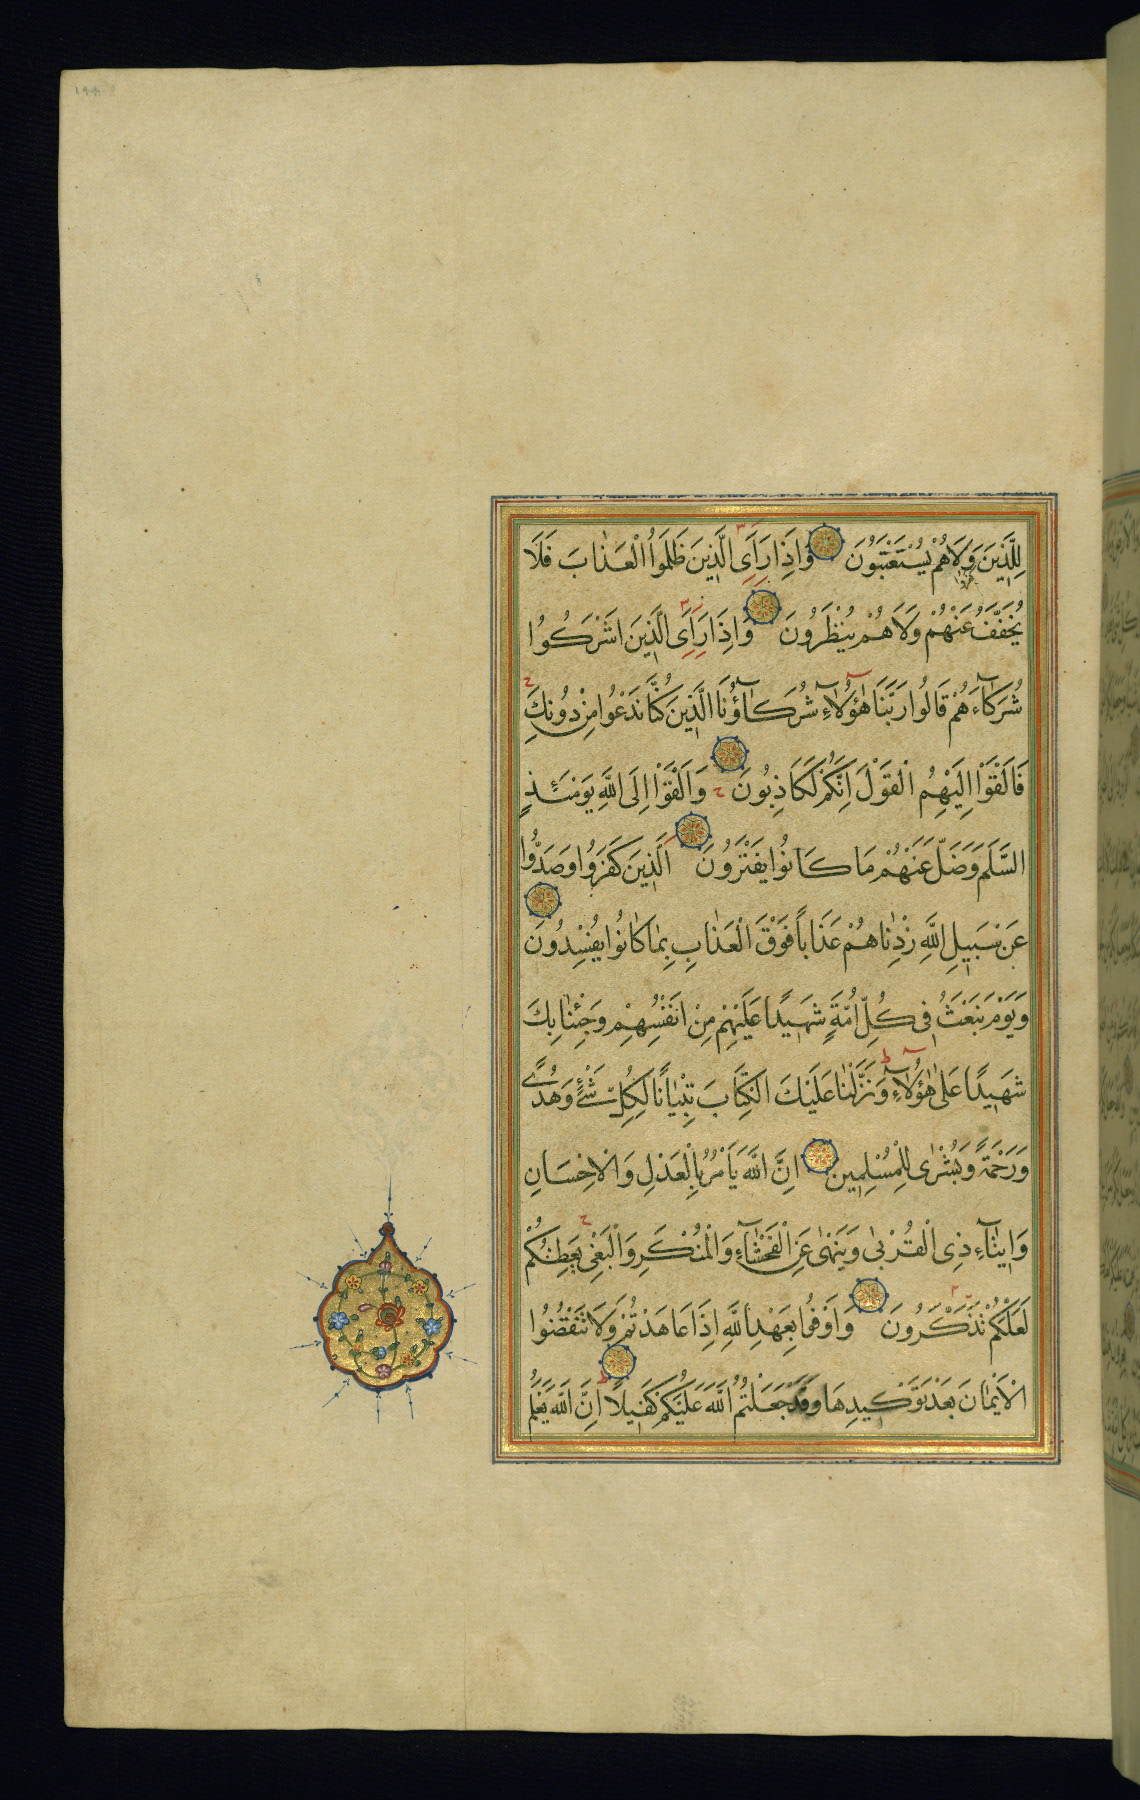 ١٩٩
لِلَّذِينَ كَفَرُوا وَلَا هُمْ يُسْتَعْتَبُونَ وَاِذَا رَاَى الَّذِينَ ظَلَمُوا الْعَذَابَ فَلَا
يُخَفَّفُ عَنْهُمْ وَلَا هُمْ يُنْظَرُونَ وَاِذَا رَاَى الَّذِينَ اَشْرَكُوا
شُرَكَاۤءَهُمْ قَالُوا رَبَّنَا هٰۤؤُلَاۤءِ شُرَكَاۤؤُنَا الَّذِينَ كُنَّا نَدْعُوا مِنْ دُونِكَ
فَاَلْقَوْا اِلَيْهِمُ الْقَوْلَ اِنَّكُمْ لَكَاذِبُونَ وَاَلْقَوْا اِلَى اللّٰهِ يَوْمَئِذٍ
السَّلَمَ وَضَلَّ عَنْهُمْ مَا كَانُوا يَفْتَرُونَ اَلَّذِينَ كَفَرُوا وَصَدُّوا
عَنْ سَبِيلِ اللّٰهِ زِدْنَاهُمْ عَذَابًا فَوْقَ الْعَذَابِ بِمَا كَانُوا يُفْسِدُونَ
وَيَوْمَ نَبْعَثُ فِى كُلِّ اُمَّةٍ شَهِيدًا عَلَيْهِمْ مِنْ اَنْفُسِهِمْ وَجِئْنَا بِكَ
شَهِيدًا عَلٰى هٰۤؤُلَاۤءِ وَنَزَّلْنَا عَلَيْكَ الْكِتَابَ تِبْيَانًا لِكُلِّ شَىْءٍ وَهُدًى
وَرَحْمَةً وَبُشْرٰى لِلْمُسْلِمِينَ اِنَّ اللّٰهَ يَاْمُرُ بِالْعَدْلِ وَالْاِحْسَانِ
وَاِيتَاۤءِ ذِى الْقُرْبٰى وَيَنْهٰى عَنِ الْفَحْشَاۤءِ وَالْمُنْكَرِ وَالْبَغْىِ يَعِظُكُمْ
لَعَلَّكُمْ تَذَكَّرُونَ وَاَوْفُوا بِعَهْدِ اللّٰهِ اِذَا عَاهَدْتُمْ وَلَا تَنْقُضُوا
الْاَيْمَانَ بَعْدَ تَوْكِيدِهَا وَقَدْ جَعَلْتُمُ اللّٰهَ عَلَيْكُمْ كَفِيلًا اِنَّ اللّٰهَ يَعْلَمُ